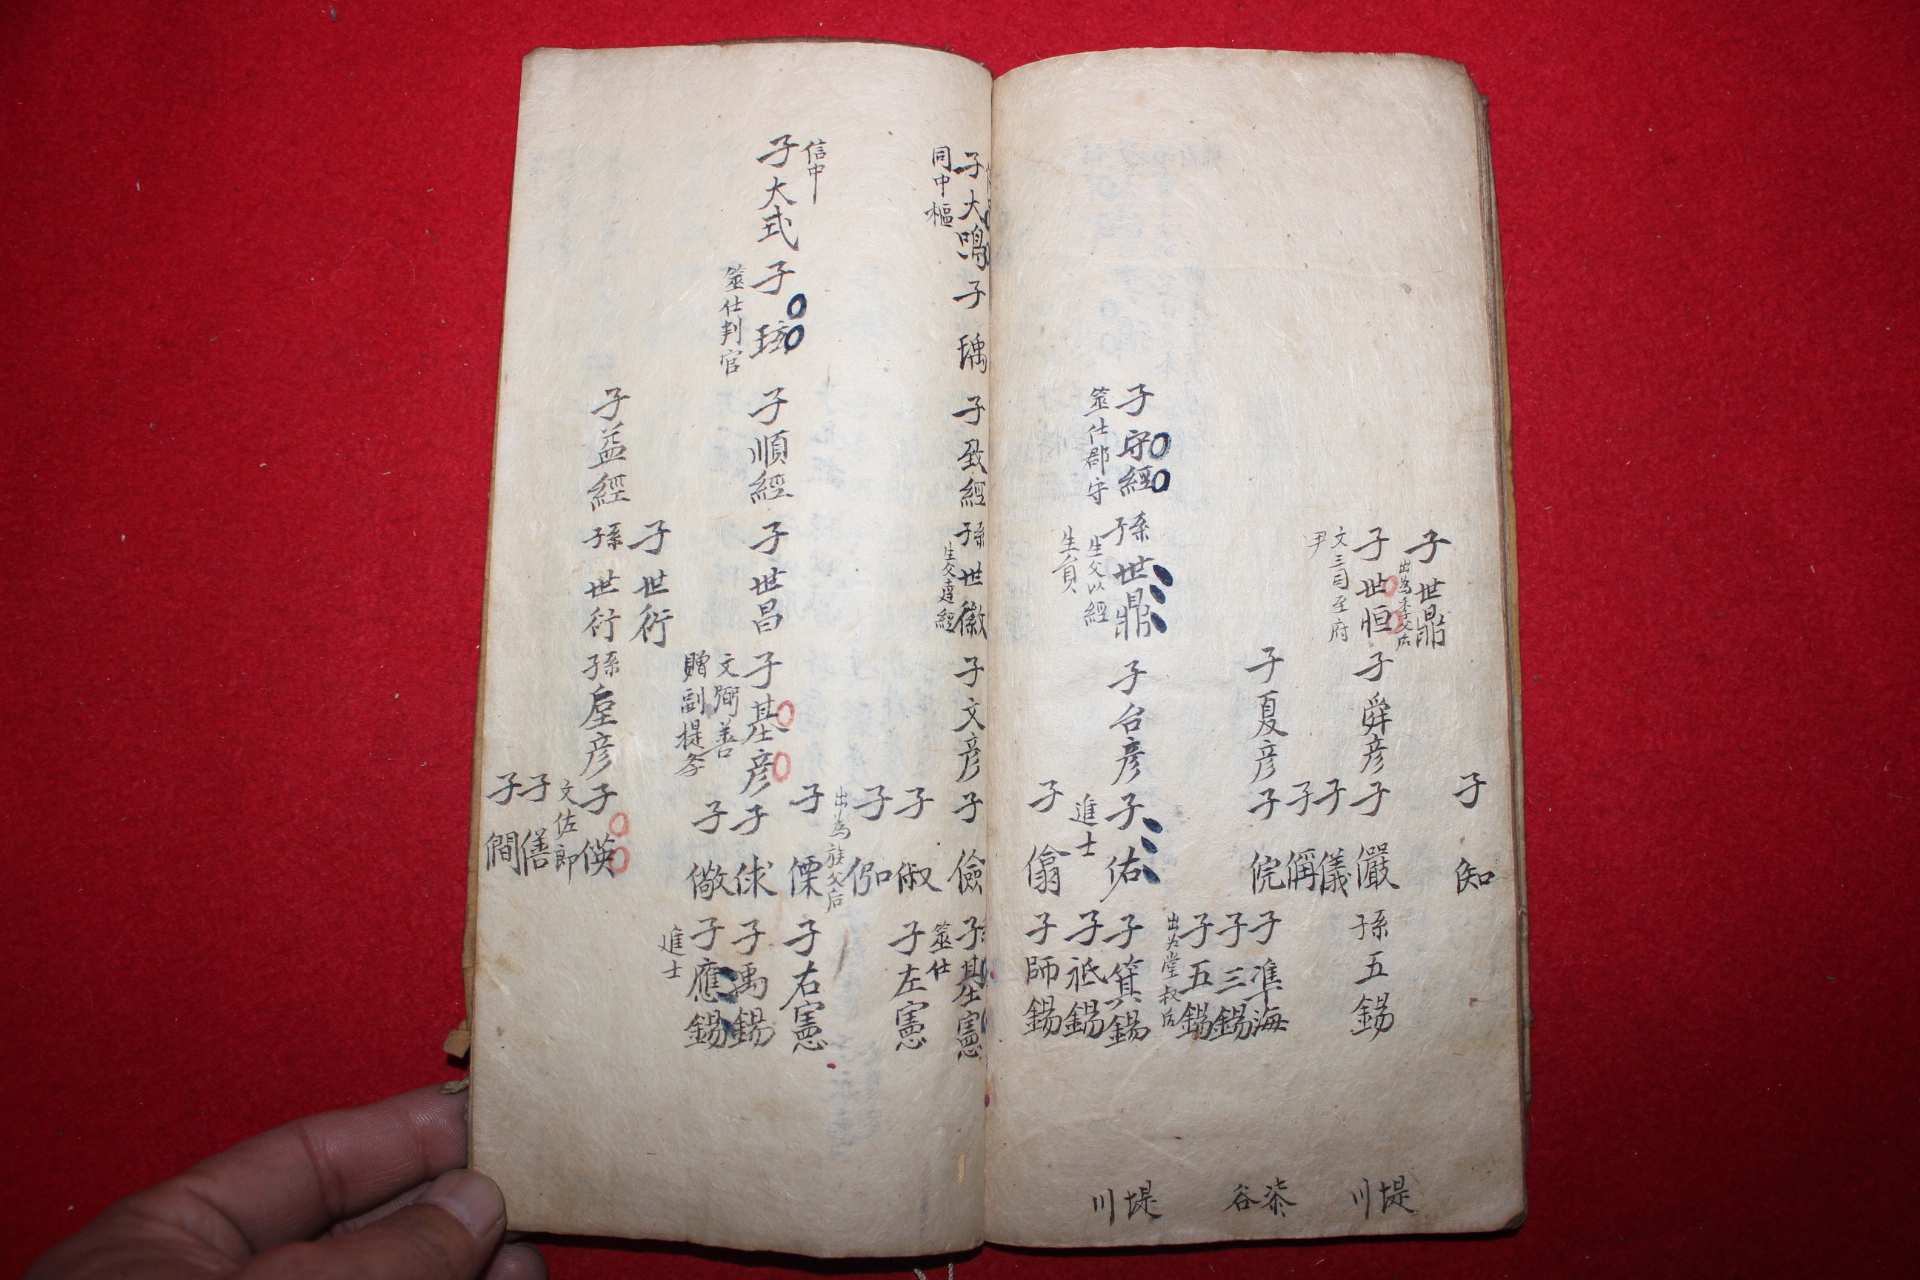 子 知
子世鼎
出為季父后
子世恒
文三司至府
尹
子舜彦
子 儼
孫五錫
子 儀
子 偁
子夏彦
子 俒
子準海
子三錫
子五錫
出为堂叔后
堤川
柒谷
堤川
子守經
筮仕郡守
孫世鼎
生父以經
生員
子台彦
子 佑
進士
子箕錫
子祗錫
子 僃
子師錫
子大鳴
同中樞
子 瑀
子致經
孫世徽
子文彦
子 儉
子基憲
筮仕
子 俶
子左憲
子
出為族父后
子 僳
子右憲
信中
子大式
子
筮仕判官
子順經
子世昌
子基彦
文弼善
贈副提学
子 俅
子禹錫
子 儆
子應錫
進士
子世衍
子益經
孫世衍
孫垕彦
子 偀
文佐郎
子 僐
子 僩